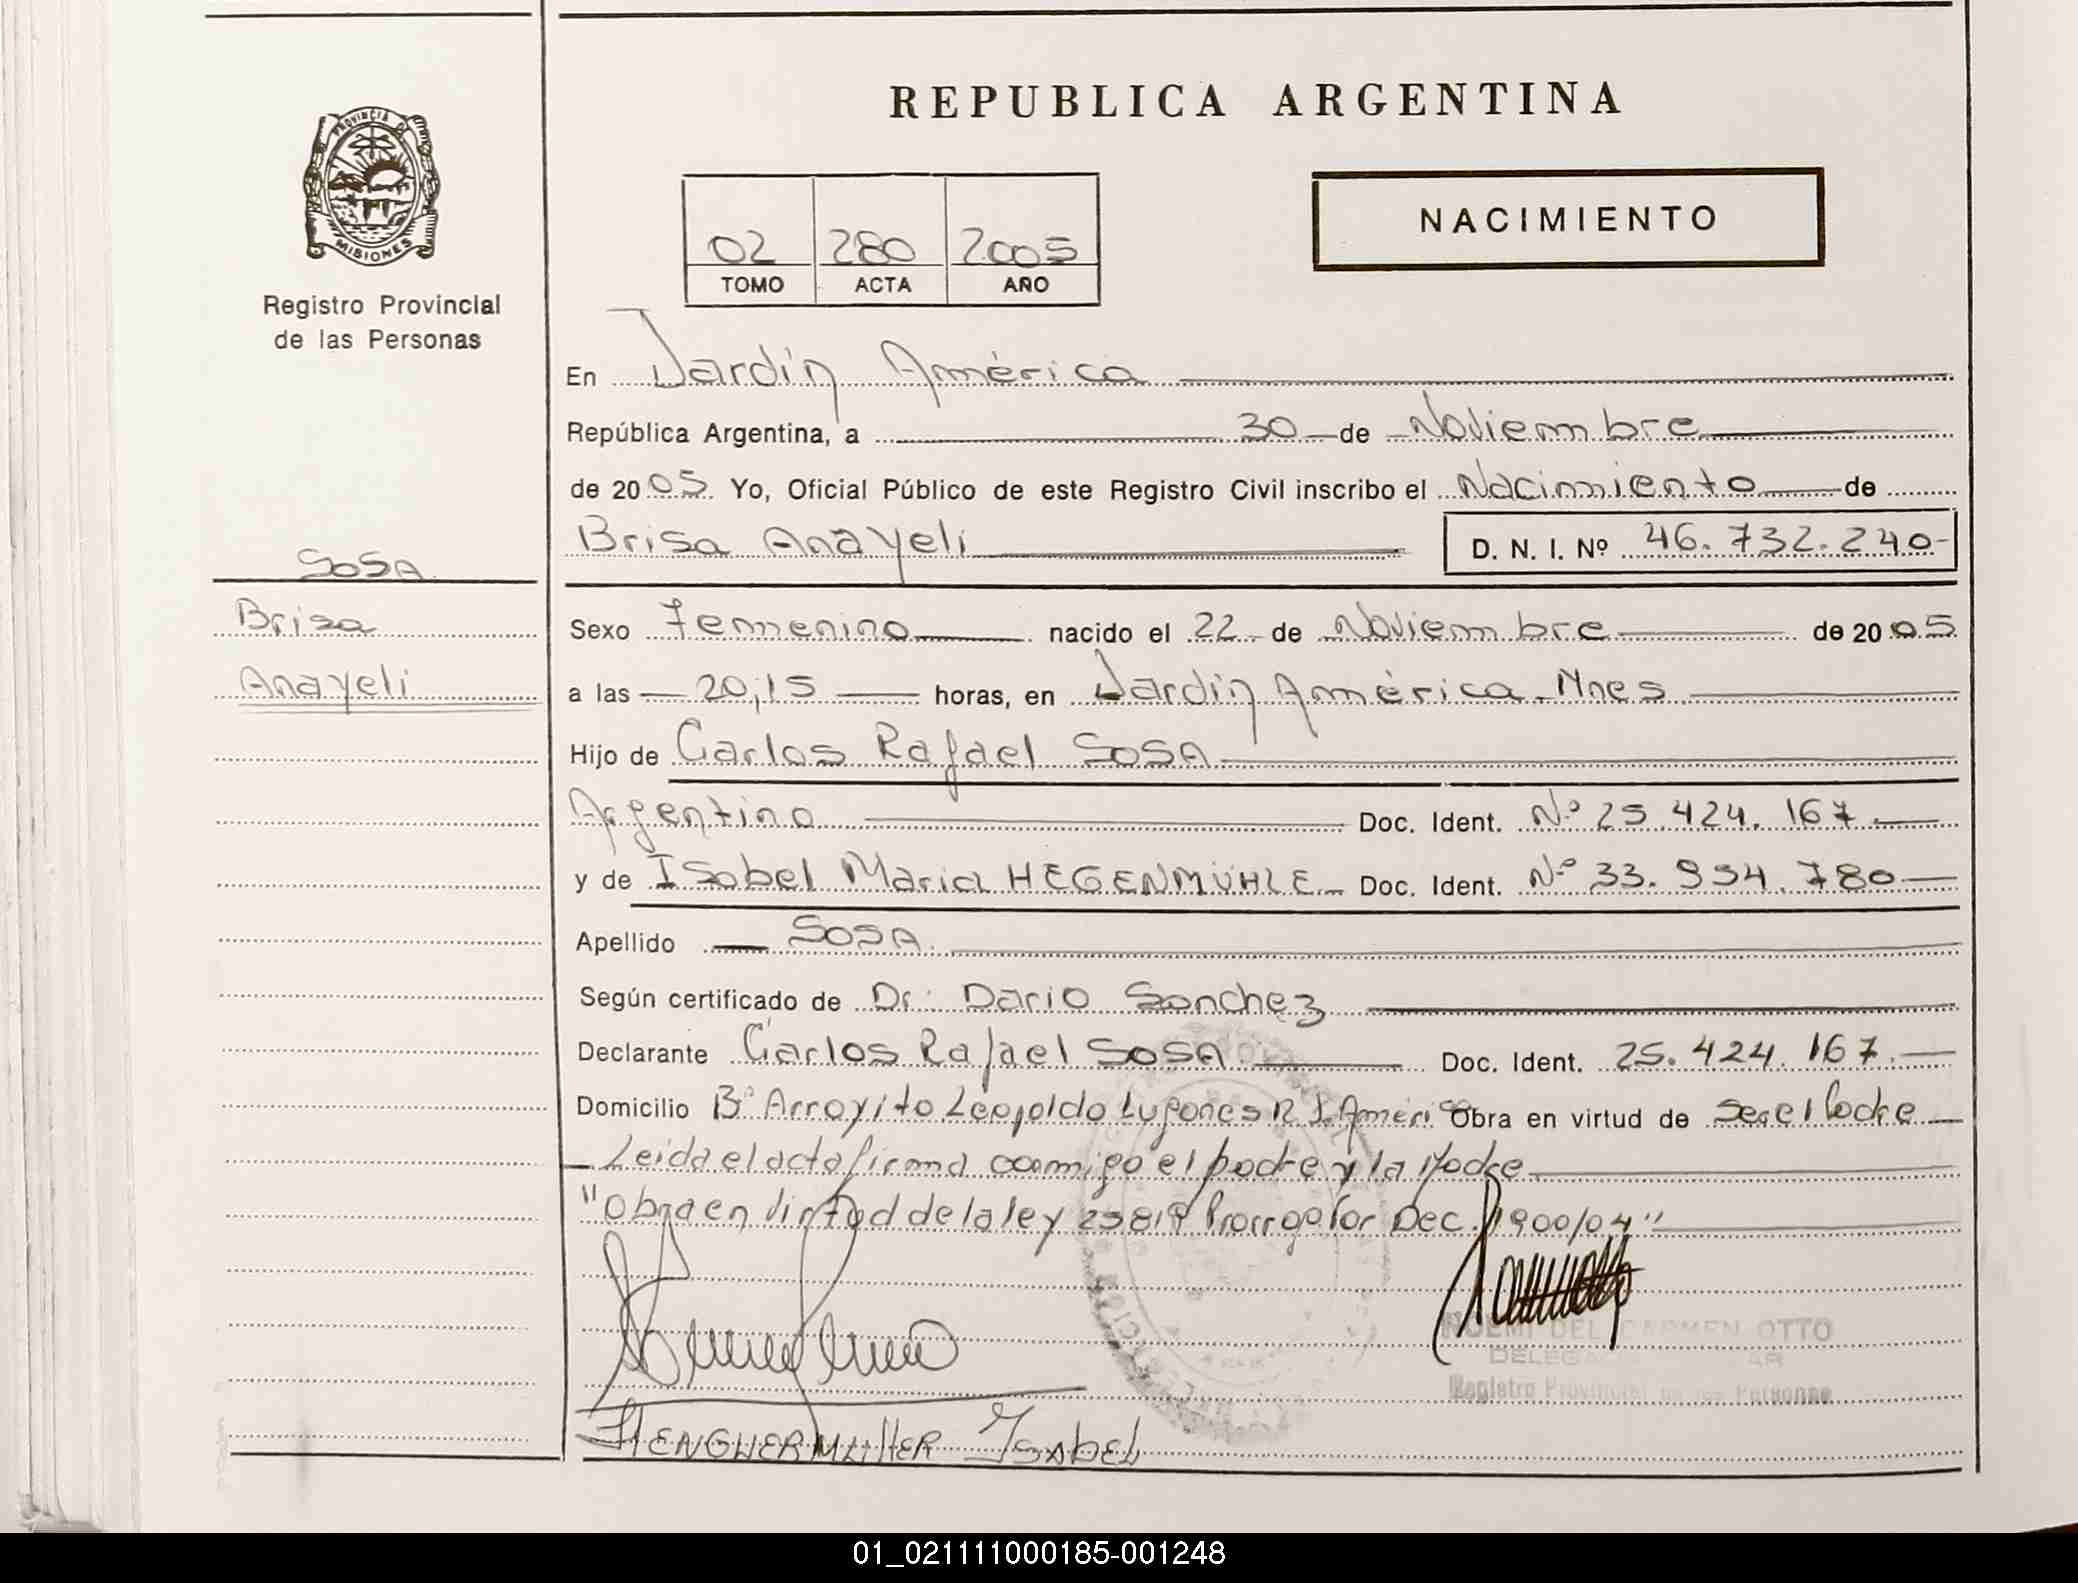 REPUBLICA ARGENTINA
PROVINCIA DE
MISIONES
Registro Provincial
de las Personas
NACIMIENTO
02 280 2005
TOMO ACTA AÑO
En Jardín América
República Argentina, a 30 de Noviembre
de 2005 Yo, Oficial Público de este Registro Civil inscribo el Nacimiento de
Brisa Anayeli D. N. I. Nº 46.732.240-
SOSA
Brisa
Anayeli
Sexo Femenino nacido el 22 de Noviembre de 2005
a las 20,15 horas, en Jardín América - Mnes
Hijo de Carlos Rafael SOSA
Argentino Doc. Ident. Nº 25.424.167
y de Isabel Maria HEGENMÜHLE Doc. Ident. Nº 33.934.780
Apellido SOSA
Según certificado de Dr. Dario Sanchez
Declarante Carlos Rafael SOSA Doc. Ident. 25.424.167
Domicilio Bº Arroyito Leopoldo Lugones Obra en virtud de Ser el Padre
Leida el acta firma conmigo el padre y la Madre
"Obra en virtud de la ley 25819 Prorroga Por Dec. 1900/04"
NOEMI DEL CARMEN OTTO
Registro Provincial de las Personas
HENGUERMULLER ISABEL
01_021111000185-001248